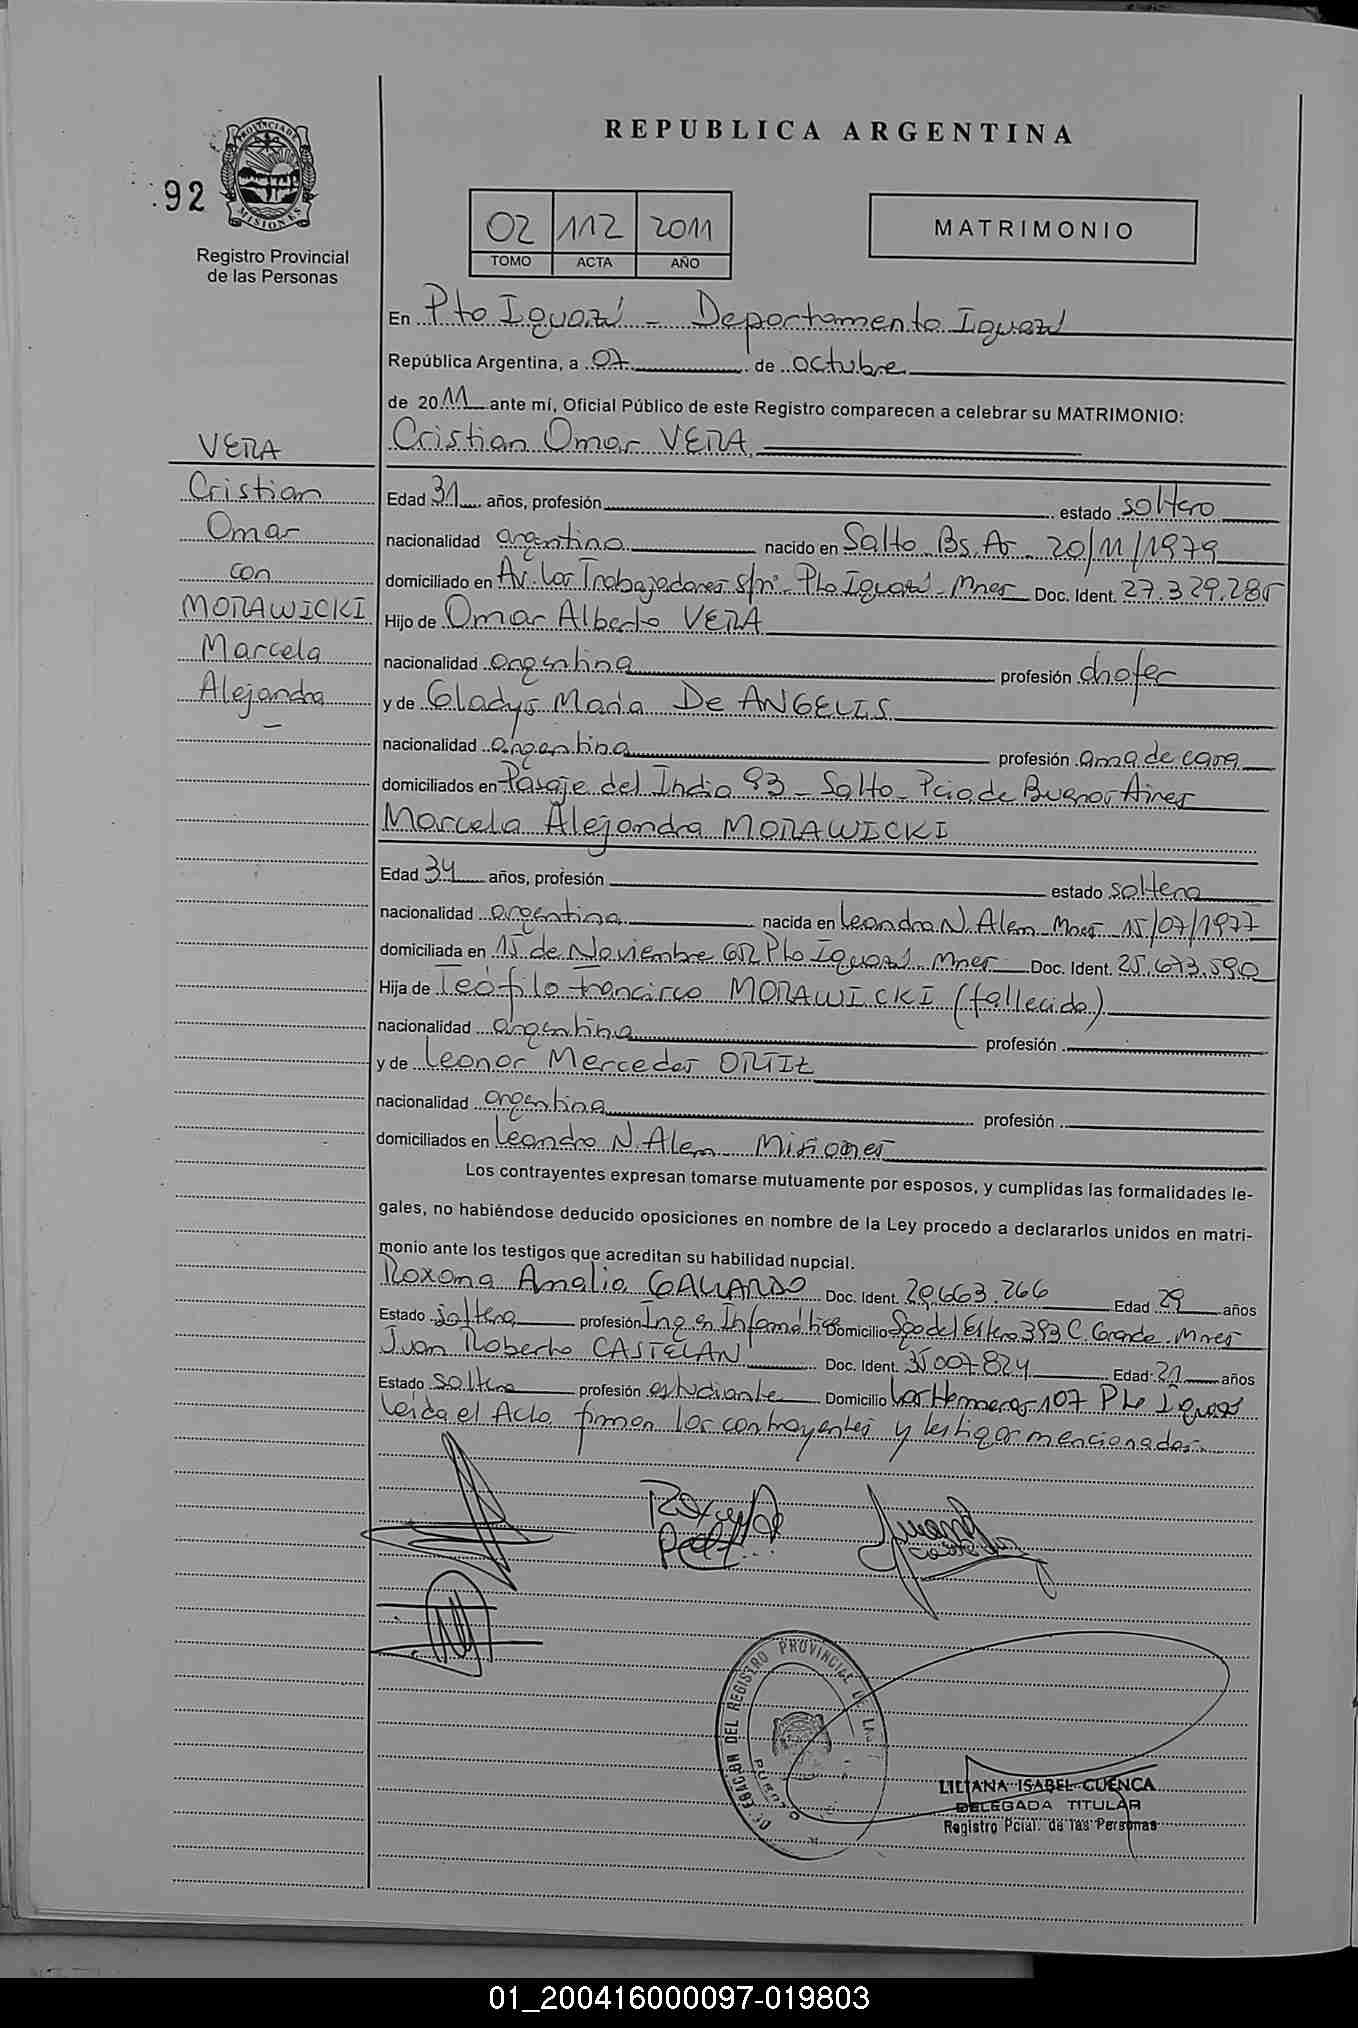 REPUBLICA ARGENTINA
92
PROVINCIA DE
MISIONES
Registro Provincial
de las Personas
02 112 2011
TOMO ACTA AÑO
MATRIMONIO
En Pto Iguazú - Departamento Iguazú
República Argentina, a 07 de octubre
de 2011 ante mí, Oficial Público de este Registro comparecen a celebrar su MATRIMONIO:
Cristian Omar VERA
VERA
Cristian
Omar
con
MORAWICKI
Marcela
Alejandra
Edad 31 años, profesión estado soltero
nacionalidad argentino nacido en Salto Bs. As 20/11/1979
domiciliado en Av. Los Trabajadores s/nº - Pto Iguazú - Mnes Doc. Ident. 27.329.285
Hijo de Omar Alberto VERA
nacionalidad argentina profesión chofer
y de Gladys María De ANGELIS
nacionalidad argentina profesión ama de casa
domiciliados en Pasaje del India 93 - Salto - Pcia de Buenos Aires
Marcela Alejandra MORAWICKI
Edad 34 años, profesión estado soltera
nacionalidad argentina nacida en Leandro N. Alem Mnes 15/07/1977
domiciliada en 15 de Noviembre 652 Pto Iguazú Mnes Doc. Ident. 25.673.590
Hija de Teófilo Francisco MORAWICKI (fallecido)
nacionalidad argentina profesión
y de Leonor Mercedes ORTIZ
nacionalidad argentina profesión
domiciliados en Leandro N. Alem Misiones
Los contrayentes expresan tomarse mutuamente por esposos, y cumplidas las formalidades le-
gales, no habiéndose deducido oposiciones en nombre de la Ley procedo a declararlos unidos en matri-
monio ante los testigos que acreditan su habilidad nupcial.
Roxana Amalia GALLARDO Doc. Ident. 29.663.266 Edad 29 años
Estado soltera profesión Ing en Informática Domicilio Sgo del Estero 393 C. Grande. Mnes
Juan Roberto CASTELAN Doc. Ident. 35007.824 Edad 21 años
Estado soltero profesión estudiante Domicilio 107 Pto Iguazú
Leída el Acta firman los contrayentes y testigos mencionados
DELEGACIÓN DEL REGISTRO PROVINCIAL DE LA
PUERTO
LILIANA ISABEL CUENCA
DELEGADA TITULAR
Registro Pcial. de las Personas
01_200416000097-019803